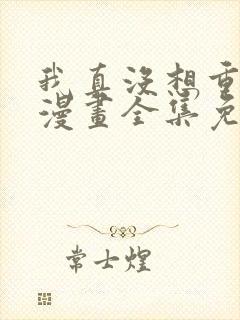 我真没想重
漫畫全集免
常士煌